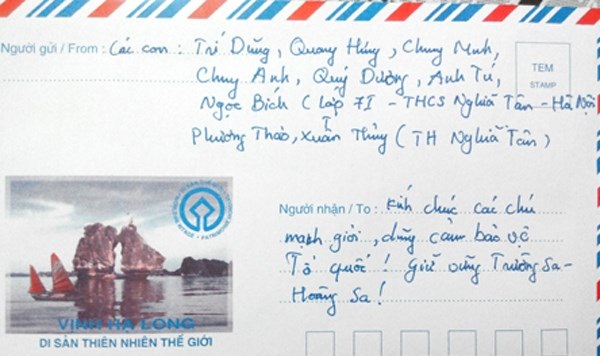 Người gửi / From : Các con : Trí Dũng, Quang Hưng, Chung Minh,
Chung Anh, Quý Dương, Anh Tú,
Ngọc Bích (Lớp 7I - THCS Nghĩa Tân - Hà Nội
Phương Thảo, Xuân Thủy (TH Nghĩa Tân)
TEM
STAMP
Người nhận / To : Kính chúc các chú
mạnh giỏi, dũng cảm bảo vệ
Tổ quốc ! Giữ vững Trường Sa -
Hoàng Sa !
VỊNH HẠ LONG
DI SẢN THIÊN NHIÊN THẾ GIỚI